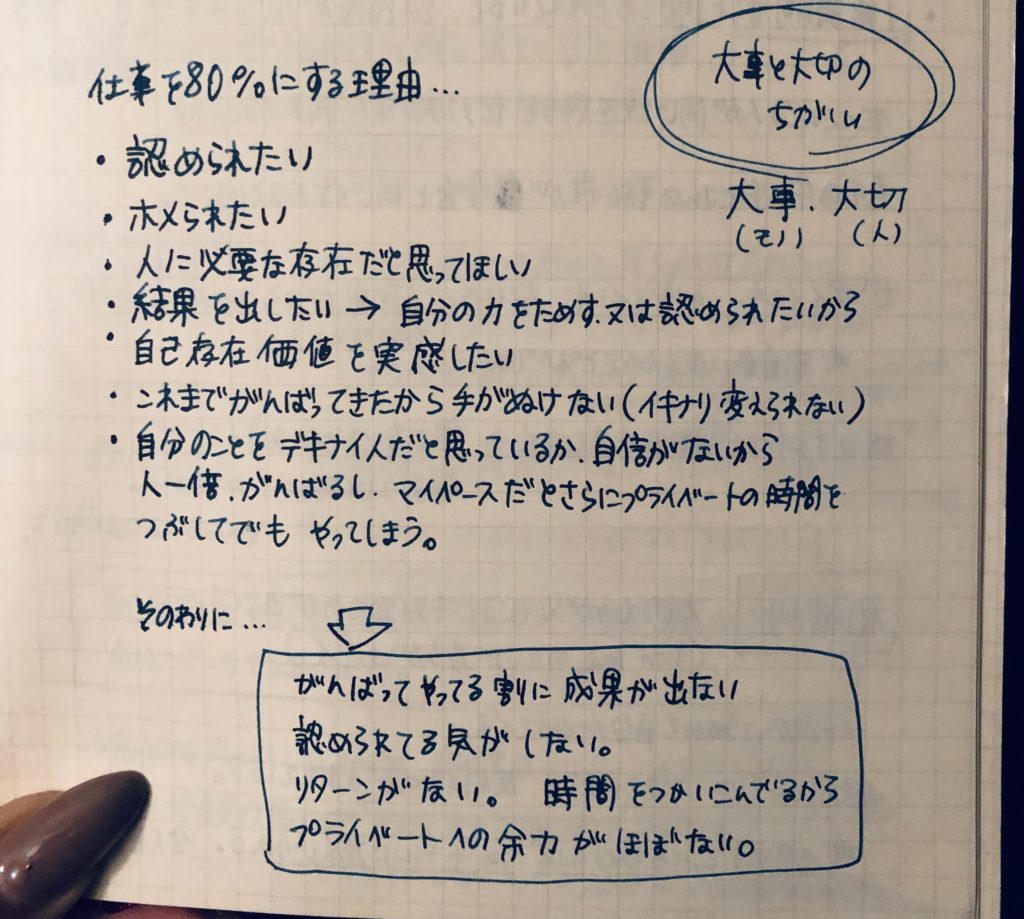 仕事を80%にする理由…
・認められたい
・ホメられたい
・人に必要な存在だと思ってほしい
・結果を出したい → 自分の力をためす.又は認められたいから
・自己存在価値を実感したい
・これまでがんばってきたから手がぬけない(イキナリ変えられない)
・自分のことをデキナイ人だと思っているか.自信がないから
人一倍.がんばるし.マイペースだとさらにプライベートの時間を
つぶしてでも やってしまう。
大事と大切の
ちがい
大事.大切
(モノ) (人)
そのわりに…
がんばってやってる割に成果が出ない
認められてる気がしない。
リターンがない。 時間をつかいこんでるから
プライベートへの余力がほぼない。